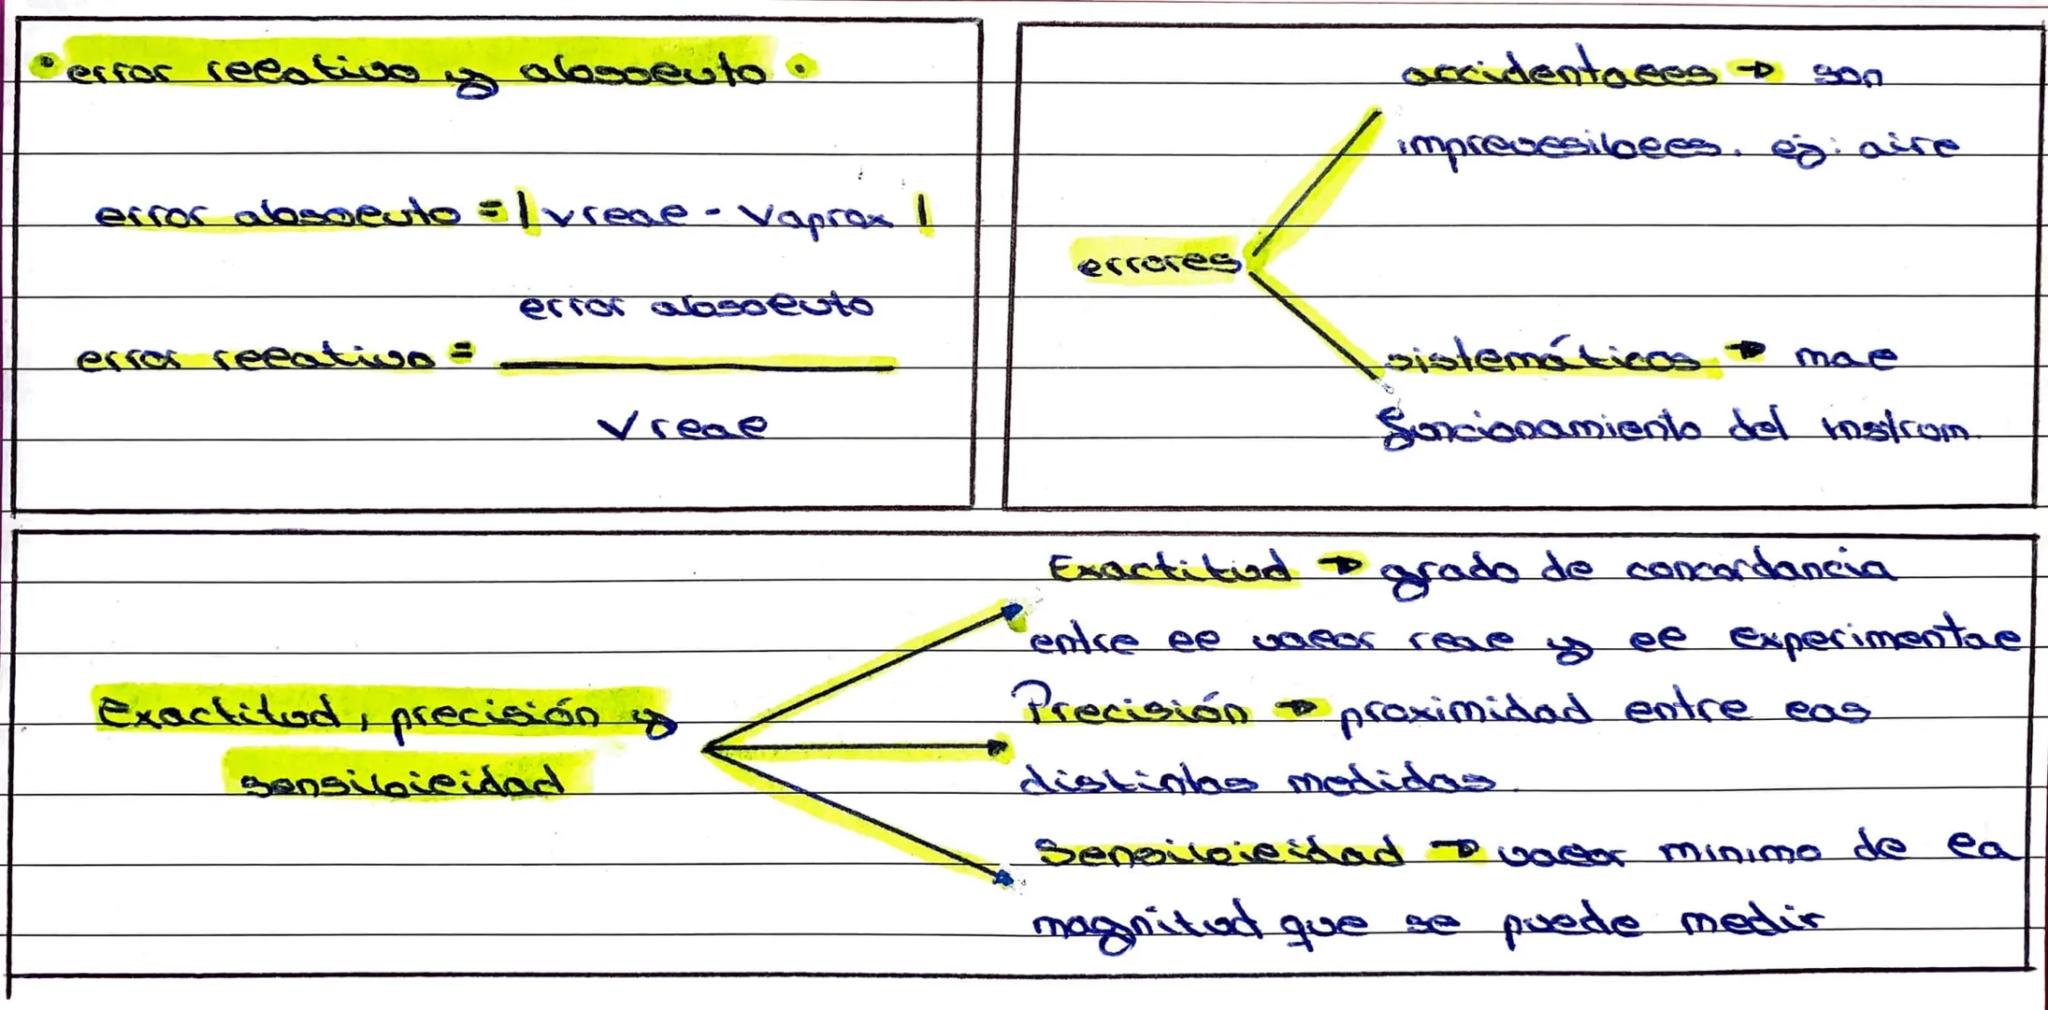 • error relativo y absoluto •
error absoluto = | Vreal - Vaprox |
error absoluto
error relativo =
Vreal
accidentales → son
imprevesibles. ej: aire
errores
sistemáticos → mal
funcionamiento del instrum.
Exactitud, precisión y
sensibilidad
Exactitud → grado de concordancia
entre el valor real y el experimental
Precisión → proximidad entre las
distintas medidas.
Sensibilidad → valor mínimo de la
magnitud que se puede medir